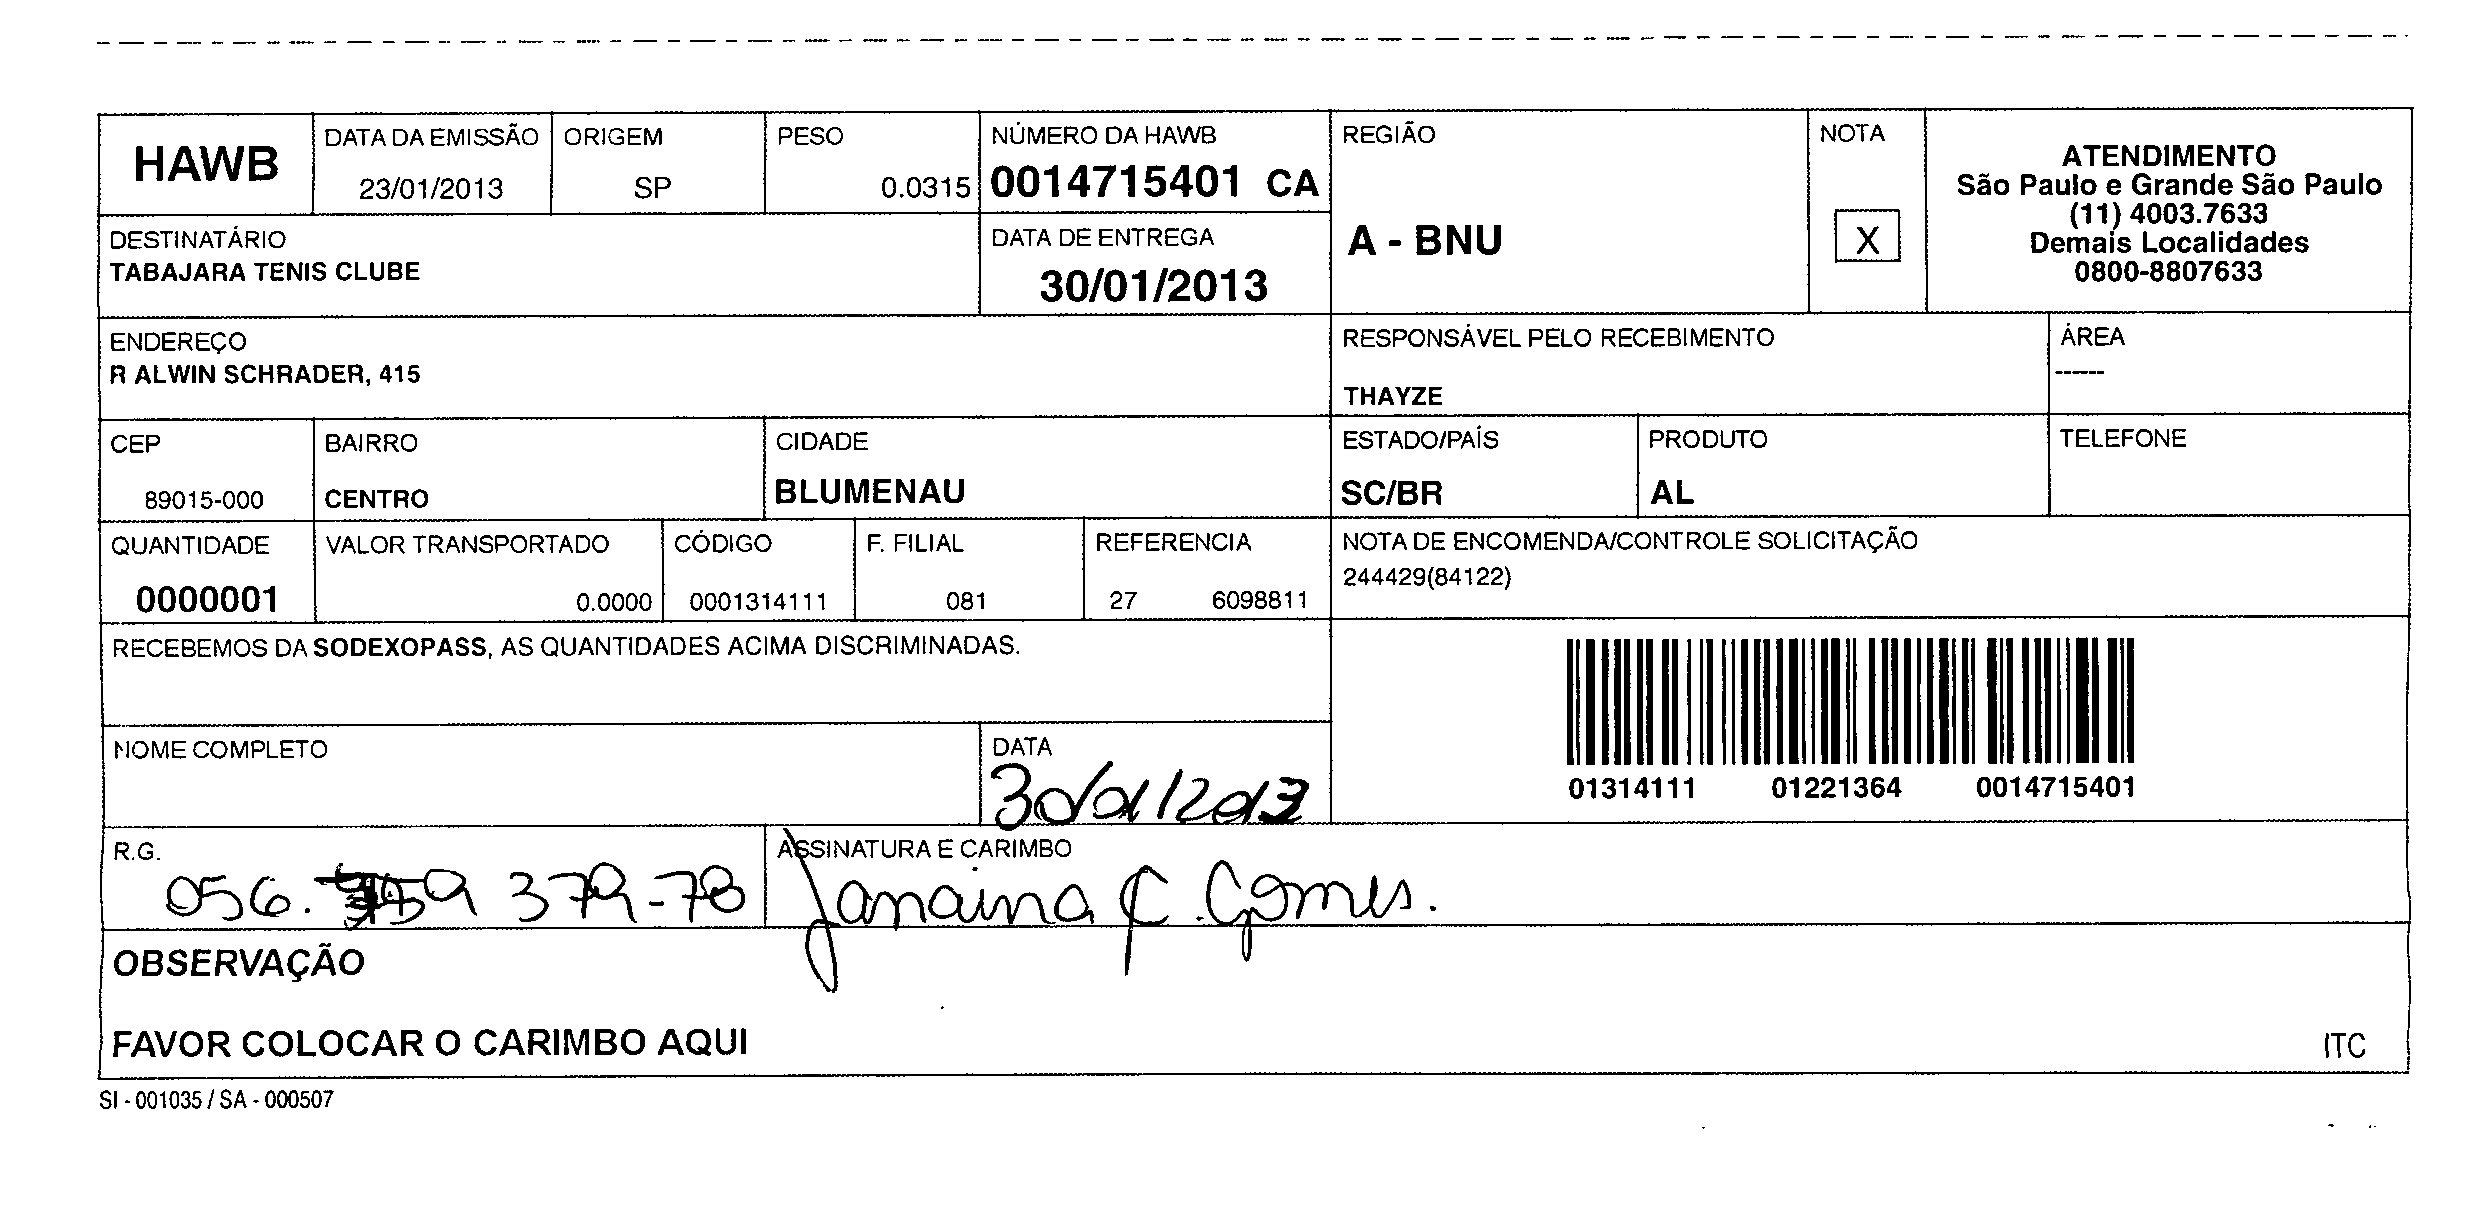 HAWB
DATA DA EMISSÃO
23/01/2013
ORIGEM
SP
PESO
0.0315
NÚMERO DA HAWB
0014715401 CA
REGIÃO
A - BNU
NOTA
X
ATENDIMENTO
São Paulo e Grande São Paulo
(11) 4003.7633
Demais Localidades
0800-8807633
DESTINATÁRIO
TABAJARA TENIS CLUBE
DATA DE ENTREGA
30/01/2013
ENDEREÇO
R ALWIN SCHRADER, 415
RESPONSÁVEL PELO RECEBIMENTO
THAYZE
ÁREA
------
CEP
89015-000
BAIRRO
CENTRO
CIDADE
BLUMENAU
ESTADO/PAÍS
SC/BR
PRODUTO
AL
TELEFONE
QUANTIDADE
0000001
VALOR TRANSPORTADO
0.0000
CÓDIGO
0001314111
F. FILIAL
081
REFERENCIA
27 6098811
NOTA DE ENCOMENDA/CONTROLE SOLICITAÇÃO
244429(84122)
RECEBEMOS DA SODEXOPASS, AS QUANTIDADES ACIMA DISCRIMINADAS.
01314111 01221364 0014715401
NOME COMPLETO
DATA
30/01/2013
R.G.
056. 379-78
ASSINATURA E CARIMBO
Janaina F. Gomes.
OBSERVAÇÃO
FAVOR COLOCAR O CARIMBO AQUI
ITC
SI - 001035 / SA - 000507